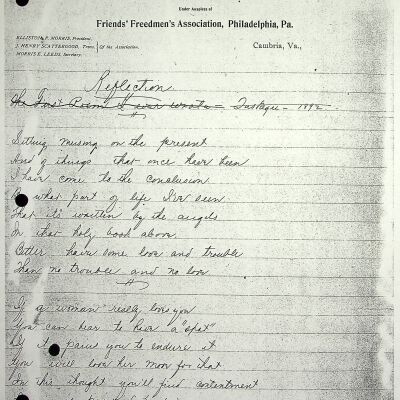 Under Auspices of
Friends' Freedmen's Association, Philadelphia, Pa.
ELLISTON P. MORRIS, President.
J. HENRY SCATTERGOOD, Treas. Of the Association.
MORRIS E. LEEDS, Secretary.
Cambria, Va.,
Reflection
The First Poem I ever wrote - Tuskegee - 1892.
Sitting musing on the present
And of things that once have been
I have come to the conclusion
By what part of life I've seen
That it's written by the angels
In that holy book above
Better have some love and trouble
Than no trouble and no love
If a woman really loves you
You can bear to have a "spat"
If it pains you to endure it
You will love her more for that
In this thought you'll find contentment